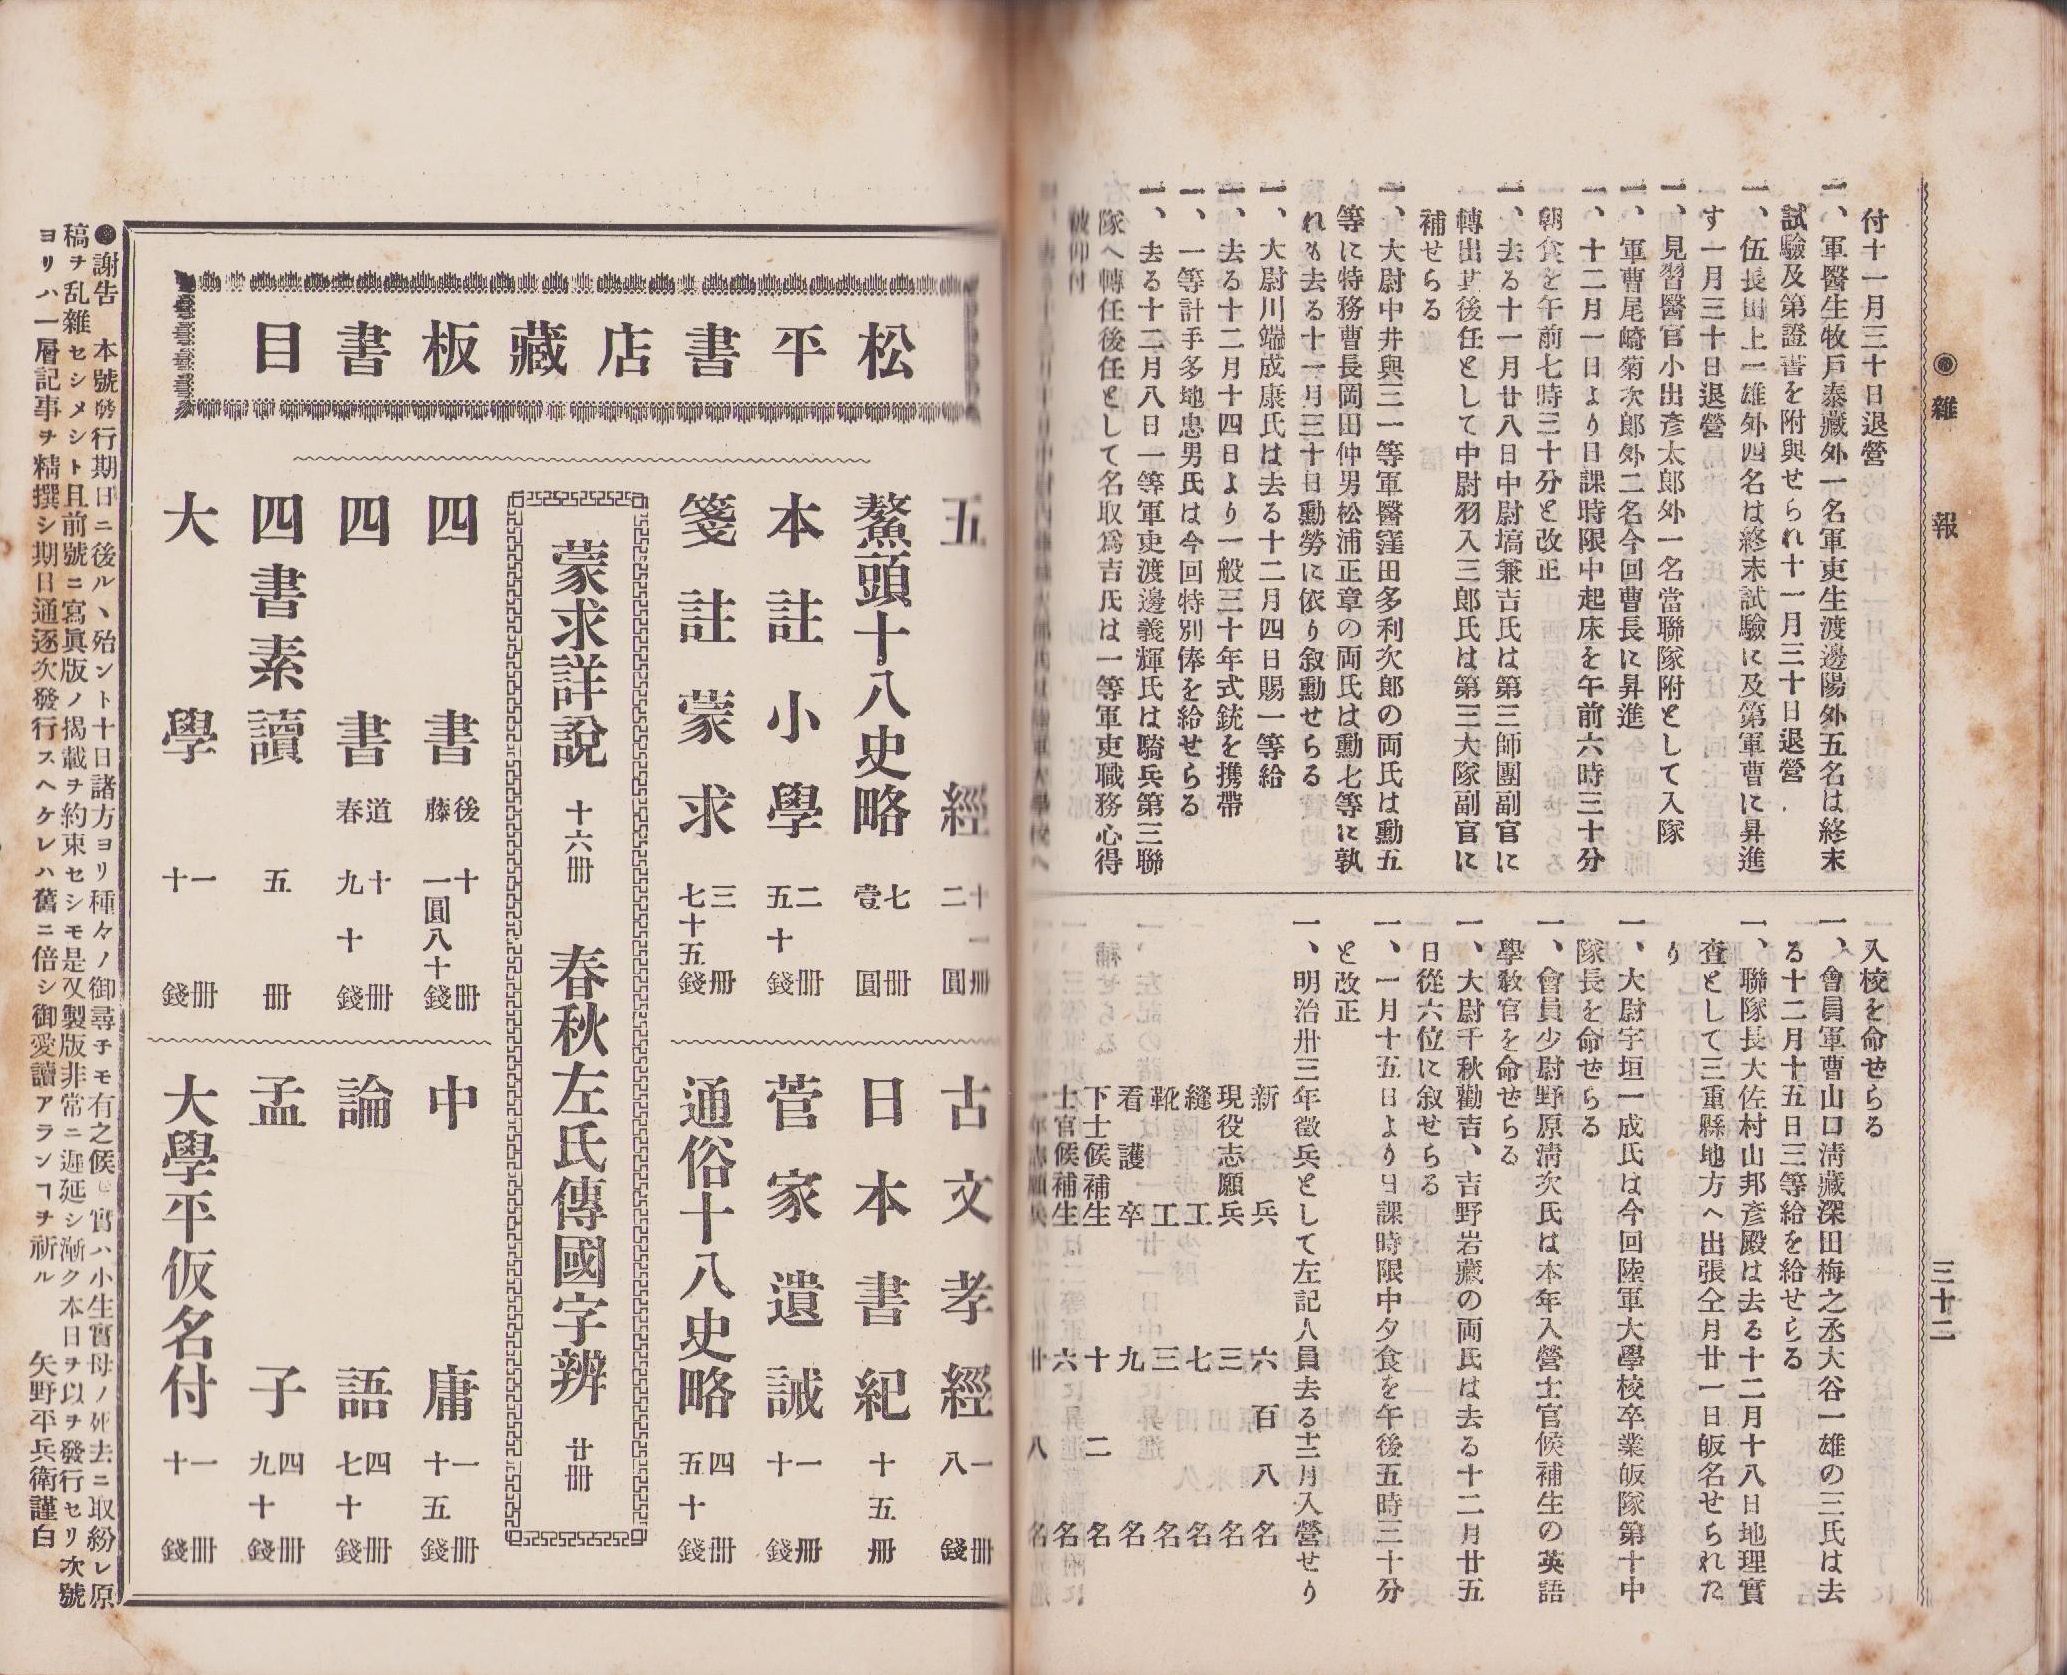 ◉雜報
三十二
付十一月三十日退營
一、軍醫生牧戶泰藏外一名軍吏生渡邊陽外五名は終末
試驗及第證書を附與せられ十一月三十日退營
一、伍長田上一雄外四名は終末試驗に及第軍曹に昇進
す一月三十日退營
一、見習醫官小出彥太郎外一名當聯隊附として入隊
一、軍曹尾崎菊次郎外二名今回曹長に昇進
一、十二月一日より日課時限中起床を午前六時三十分
朝食を午前七時三十分と改正
一、去る十一月廿八日中尉塙兼吉氏は第三師團副官に
轉出其後任として中尉羽入三郎氏は第三大隊副官に
補せらる
一、大尉中井與三一等軍醫窪田多利次郎の両氏は勳五
等に特務曹長岡田仲男松浦正章の両氏は勳七等に孰
れも去る十一月三十日勳勞に依り叙勳せらる
一、大尉川端成康氏は去る十二月四日賜一等給
一、去る十二月十四日より一般三十年式銃を携帶
一、一等計手多地忠男氏は今回特別俸を給せらる
一、去る十二月八日一等軍吏渡邊義輝氏は騎兵第三聯
隊へ轉任後任として名取爲吉氏は一等軍吏職務心得
被仰付
入校を命せらる
一、會員軍曹山口淸藏深田梅之丞大谷一雄の三氏は去
る十二月十五日三等給を給せらる
一、聯隊長大佐村山邦彥殿は去る十二月十八日地理實
査として三重縣地方へ出張仝月廿一日皈名せられた
り
一、大尉宇垣一成氏は今回陸軍大學校卒業皈隊第十中
隊長を命せらる
一、會員少尉野原淸次氏は本年入營士官候補生の英語
學敎官を命せらる
一、大尉千秋勸吉、吉野岩藏の両氏は去る十二月廿五
日從六位に叙せらる
一、一月十五日より日課時限中夕食を午後五時三十分
と改正
一、明治卅三年徵兵として左記人員去る十二月入營せり
新兵 六百八名
現役志願兵 三名
縫工 七名
靴工 三名
看護卒 九名
下士候補生 十二名
士官候補生 六名
一年志願兵 廿八名
松平書店藏板書目
五經 十一冊 二圓
鰲頭十八史略 七冊 壹圓
本註小學 二冊 五十錢
箋註蒙求 三冊 七十五錢
古文孝經 一冊 八錢
日本書紀 十五冊
菅家遺誡 一冊 十錢
通俗十八史略 四冊 五十錢
蒙求詳說 十六冊 春秋左氏傳國字辨 廿冊
四書 後藤 十冊 一圓八十錢
四書 道春 十冊 九十錢
四書素讀 五冊
大學 一冊 十錢
中庸 一冊 十五錢
論語 四冊 七十錢
孟子 四冊 九十錢
大學平仮名付 一冊 十錢
◉謝告 本號發行期日ニ後ルヽ殆ント十日諸方ヨリ種々ノ御尋子モ有之候ヒ實ハ小生實母ノ死去ニ取紛レ原
稿ヲ乱雜セシメシト且前號ニ寫眞版ノ揭載ヲ約束セシモ是又製版非常ニ遲延シ漸ク本日ヲ以ヲ發行セリ次號
ヨリハ一層記事ヲ精撰シ期日通逐次發行スヘケレハ舊ニ倍シ御愛讀アランヿヲ祈ル 矢野平兵衛謹白